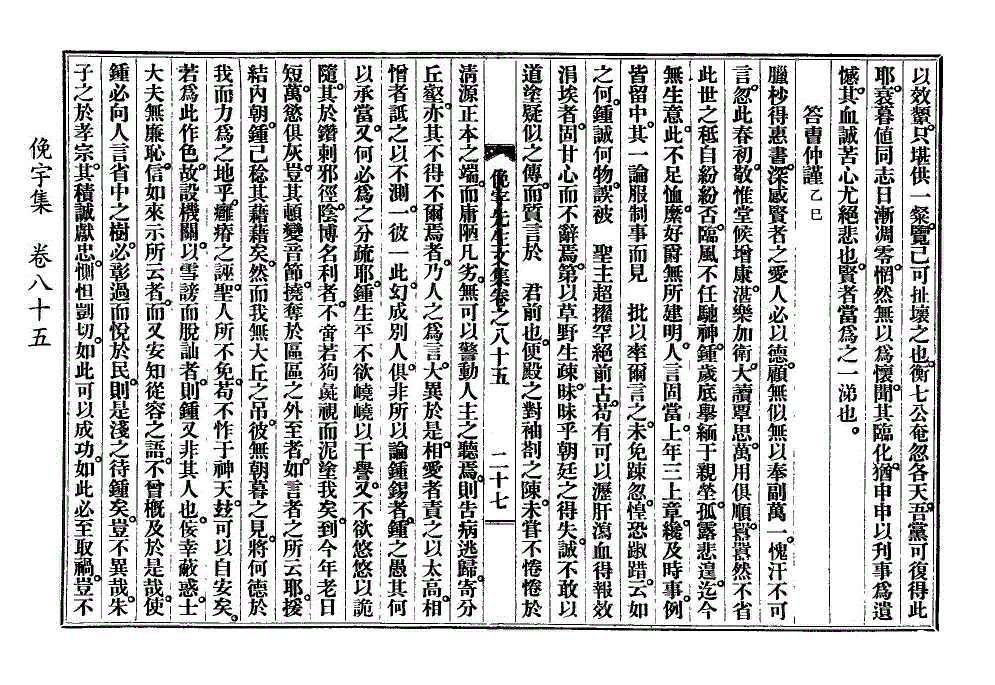 以效顰。只堪供一粲。覽已可扯壞之也。衡七公奄忽各天。吾黨可復得此
耶。衰暮値同志日漸凋零。惘然無以爲懷。聞其臨化。猶申申以刋事爲遺
憾。其血誠苦心尤絕悲也。賢者當爲之一涕也。
答曹仲謹 乙巳
臘杪得惠書。深感賢者之愛人必以德。顧無似無以奉副萬一。愧汗不可
言。忽此春初。敬惟堂候增康。湛樂加衛。大讀覃思。萬用俱順。嚣嚣然不省
此世之秪自紛紛否。臨風不任馳神。鍾歲底擧緬于親塋。孤露悲遑。迄今
無生意。此不足恤。縻好爵無所建明。人言固當。上年三上章。纔及時事。例
皆留中。其一論服制事而見 批以率爾言之。未免踈忽。惶恐踧踖。云如
之何。鍾誠何物。誤被 聖主超擢罕絕前古。苟有可以瀝肝瀉血得報效
涓埃者。固甘心而不辭焉。第以草野生疎。昧昧乎朝廷之得失。誠不敢以
道塗疑似之傳而質言於 君前也。便殿之對袖剳之陳。未甞不惓惓於
俛宇先生文集卷之八十五 二十七
淸源正本之端。而庸陋凡劣。無可以警動人主之聽焉。則告病逃歸。寄分
丘壑。亦其不得不爾焉者。乃人之爲言。大異於是。相愛者責之以太高。相
憎者詆之以不測。一彼一此。幻成別人。俱非所以論鍾錫者。鍾之愚其何
以承當。又何必爲之分疏耶。鍾生平不欲嶢嶢以干譽。又不欲悠悠以詭
隨。其於鑽刺邪徑。陰博名利者。不啻若狗彘視而泥塗我矣。到今年老日
短。萬慾俱灰。豈其頓變音節。撓奪於區區之外至者。如言者之所云耶。援
結內朝。鍾已稔其藉藉矣。然而我無大丘之吊。彼無朝暮之見。將何德於
我而力爲之地乎。癰瘠之誣。聖人所不免。苟不怍于神天。玆可以自安矣。
若爲此作色。故設機關。以雪謗而脫訕者。則鍾又非其人也。侫幸蔽惑。士
大夫無廉恥。信如來示所云者。而又安知從容之語。不曾槪及於是哉。使
鍾必向人言省中之樹。必彰過而悅於民。則是淺之待鍾矣。豈不異哉。朱
子之於孝宗。其積誠獻忠。惻怛剴切。如此可以成功。如此必至取禍。豈不
俛宇集 卷八十五